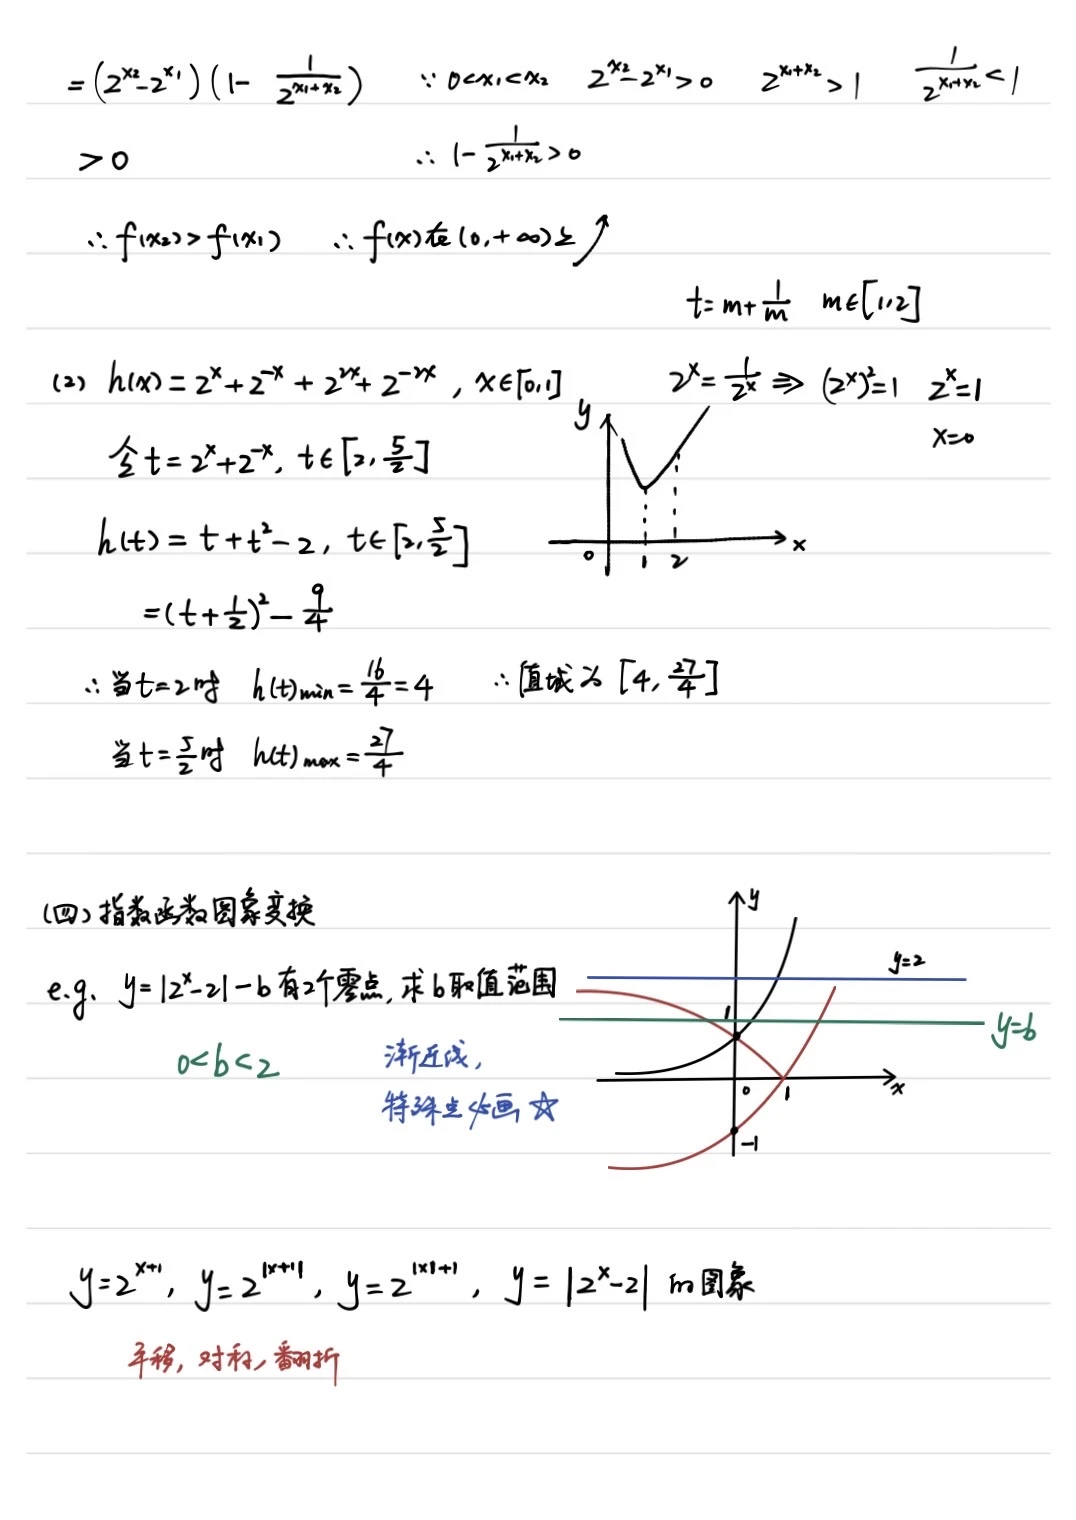 = (2^{x₂} - 2^{x₁}) (1 - \frac{1}{2^{x₁+x₂}}) ∵ 0<x₁<x₂ 2^{x₂} - 2^{x₁} > 0 2^{x₁+x₂} > 1 \frac{1}{2^{x₁+x₂}} < 1
> 0 ∴ 1 - \frac{1}{2^{x₁+x₂}} > 0
∴ f(x₂) > f(x₁) ∴ f(x)在(0,+∞)上↗
t = m + \frac{1}{m} m∈[1,2]
(2) h(x) = 2^x + 2^{-x} + 2^{2x} + 2^{-2x}, x∈[0,1] 2^x = \frac{1}{2^x} ⇒ (2^x)² = 1 2^x = 1
x=0
令 t = 2^x + 2^{-x}, t∈[2, \frac{5}{2}]
y
h(t) = t + t² - 2, t∈[2, \frac{5}{2}]
0 1 2 x
= (t + \frac{1}{2})² - \frac{9}{4}
∴ 当t=2时 h(t)min = \frac{16}{4} = 4 ∴ 值域为 [4, \frac{27}{4}]
当t=\frac{5}{2}时 h(t)max = \frac{27}{4}
(四)指数函数图象变换
y
e.g. y = |2^x - 2| - b 有2个零点, 求b取值范围
y=2
1
y=b
0<b<2 渐近线,
0 1 x
特殊点必画 ☆
-1
y = 2^{x+1}, y = 2^{|x+1|}, y = 2^{|x|+1}, y = |2^x - 2| 的图象
平移, 对称, 翻折